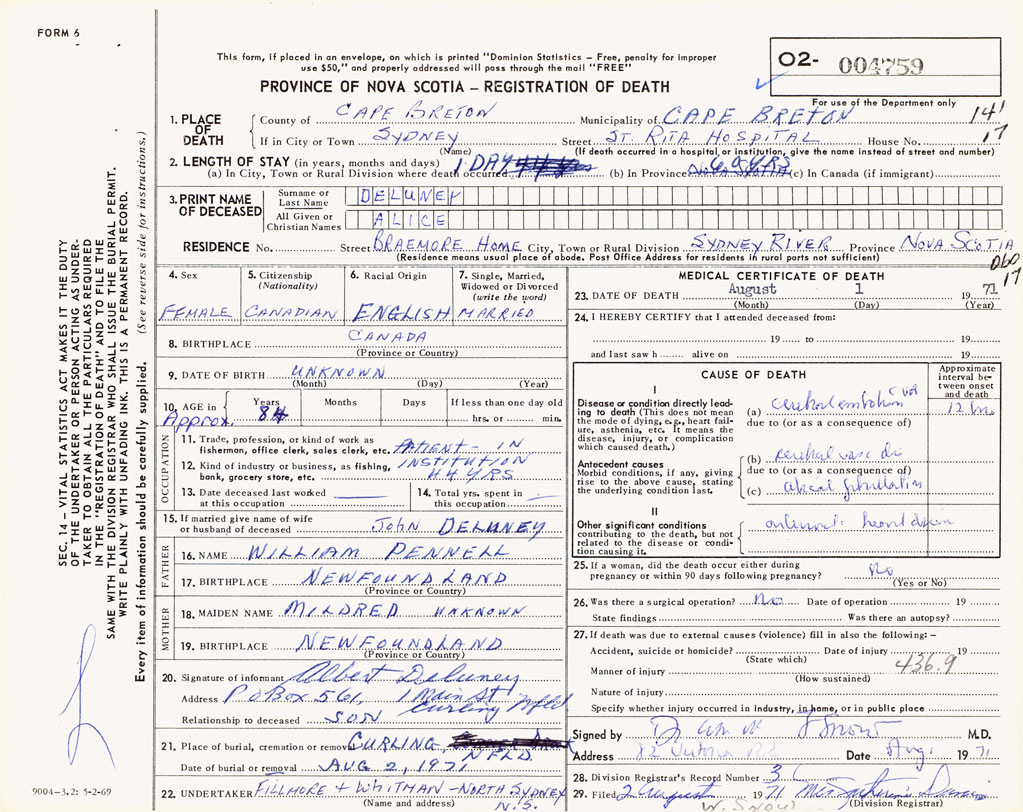 FORM 6
This form, if placed in an envelope, on which is printed "Dominion Statistics – Free, penalty for improper
use $50," and properly addressed will pass through the mail "FREE"
PROVINCE OF NOVA SCOTIA – REGISTRATION OF DEATH
O2- 004759
For use of the Department only
141
17
1. PLACE OF DEATH
County of CAPE BRETON Municipality of CAPE BRETON
If in City or Town SYDNEY Street ST. RITA HOSPITAL House No.
(Name) (If death occurred in a hospital or institution, give the name instead of street and number)
2. LENGTH OF STAY (in years, months and days)
(a) In City, Town or Rural Division where death occurred 1 DAY (b) In Province 69 YRS (c) In Canada (if immigrant)
3. PRINT NAME OF DECEASED
Surname or Last Name DELUNEY
All Given or Christian Names ALICE
RESIDENCE No. Street BRAEMORE HOME City, Town or Rural Division SYDNEY RIVER Province NOVA SCOTIA
(Residence means usual place of abode. Post Office Address for residents in rural parts not sufficient)
060
17
4. Sex
FEMALE
5. Citizenship (Nationality)
CANADIAN
6. Racial Origin
ENGLISH
7. Single, Married, Widowed or Divorced (write the word)
MARRIED
8. BIRTHPLACE CANADA
(Province or Country)
9. DATE OF BIRTH UNKNOWN
(Month) (Day) (Year)
10. AGE in Years Months Days If less than one day old
Approx. 84 hrs. or min.
OCCUPATION
11. Trade, profession, or kind of work as
fisherman, office clerk, sales clerk, etc. PATIENT - IN
12. Kind of industry or business, as fishing, INSTITUTION
bank, grocery store, etc. 44 YRS
13. Date deceased last worked at this occupation
14. Total yrs. spent in this occupation
15. If married give name of wife
or husband of deceased John DELUNEY
FATHER
16. NAME WILLIAM PENNELL
17. BIRTHPLACE NEWFOUNDLAND
(Province or Country)
MOTHER
18. MAIDEN NAME MILDRED UNKNOWN
19. BIRTHPLACE NEWFOUNDLAND
(Province or Country)
20. Signature of informant Albert Deluney
Address P O Box 561, 1 Main St
Curling Nfld
Relationship to deceased SON
21. Place of burial, cremation or removal CURLING NFLD.
Date of burial or removal AUG 2, 1971
22. UNDERTAKER FILLMORE + WHITMAN - NORTH SYDNEY
N.S.
(Name and address)
MEDICAL CERTIFICATE OF DEATH
23. DATE OF DEATH August 1 1971
(Month) (Day) (Year)
24. I HEREBY CERTIFY that I attended deceased from:
19 to 19
and last saw h alive on 19
CAUSE OF DEATH
Approximate interval between onset and death
I
Disease or condition directly leading to death (This does not mean the mode of dying, e.g., heart failure, asthenia, etc. It means the disease, injury, or complication which caused death.)
(a) cerebral embolism
due to (or as a consequence of)
12 hrs
Antecedent causes
Morbid conditions, if any, giving rise to the above cause, stating the underlying condition last.
(b) cerebral vasc dis
due to (or as a consequence of)
(c) fibrillation
II
Other significant conditions contributing to the death, but not related to the disease or condition causing it.
heart
25. If a woman, did the death occur either during
pregnancy or within 90 days following pregnancy? No
(Yes or No)
26. Was there a surgical operation? No Date of operation 19
State findings Was there an autopsy?
27. If death was due to external causes (violence) fill in also the following:–
Accident, suicide or homicide? Date of injury 19
(State which)
436.9
Manner of injury
(How sustained)
Nature of injury
Specify whether injury occurred in industry, in home, or in public place
Signed by M.D.
Address 82 Victoria Rd Date Aug 1 1971
28. Division Registrar's Record Number 3
29. Filed 2 August 1971
(Division Registrar)
SEC. 14 – VITAL STATISTICS ACT MAKES IT THE DUTY
OF THE UNDERTAKER OR PERSON ACTING AS UNDER-
TAKER TO OBTAIN ALL THE PARTICULARS REQUIRED
IN THE "REGISTRATION OF DEATH" AND TO FILE THE
SAME WITH THE DIVISION REGISTRAR WHO SHALL ISSUE THE BURIAL PERMIT.
WRITE PLAINLY WITH UNFADING INK. THIS IS A PERMANENT RECORD.
Every item of information should be carefully supplied. (See reverse side for instructions.)
9004–3.2: 5-2-69